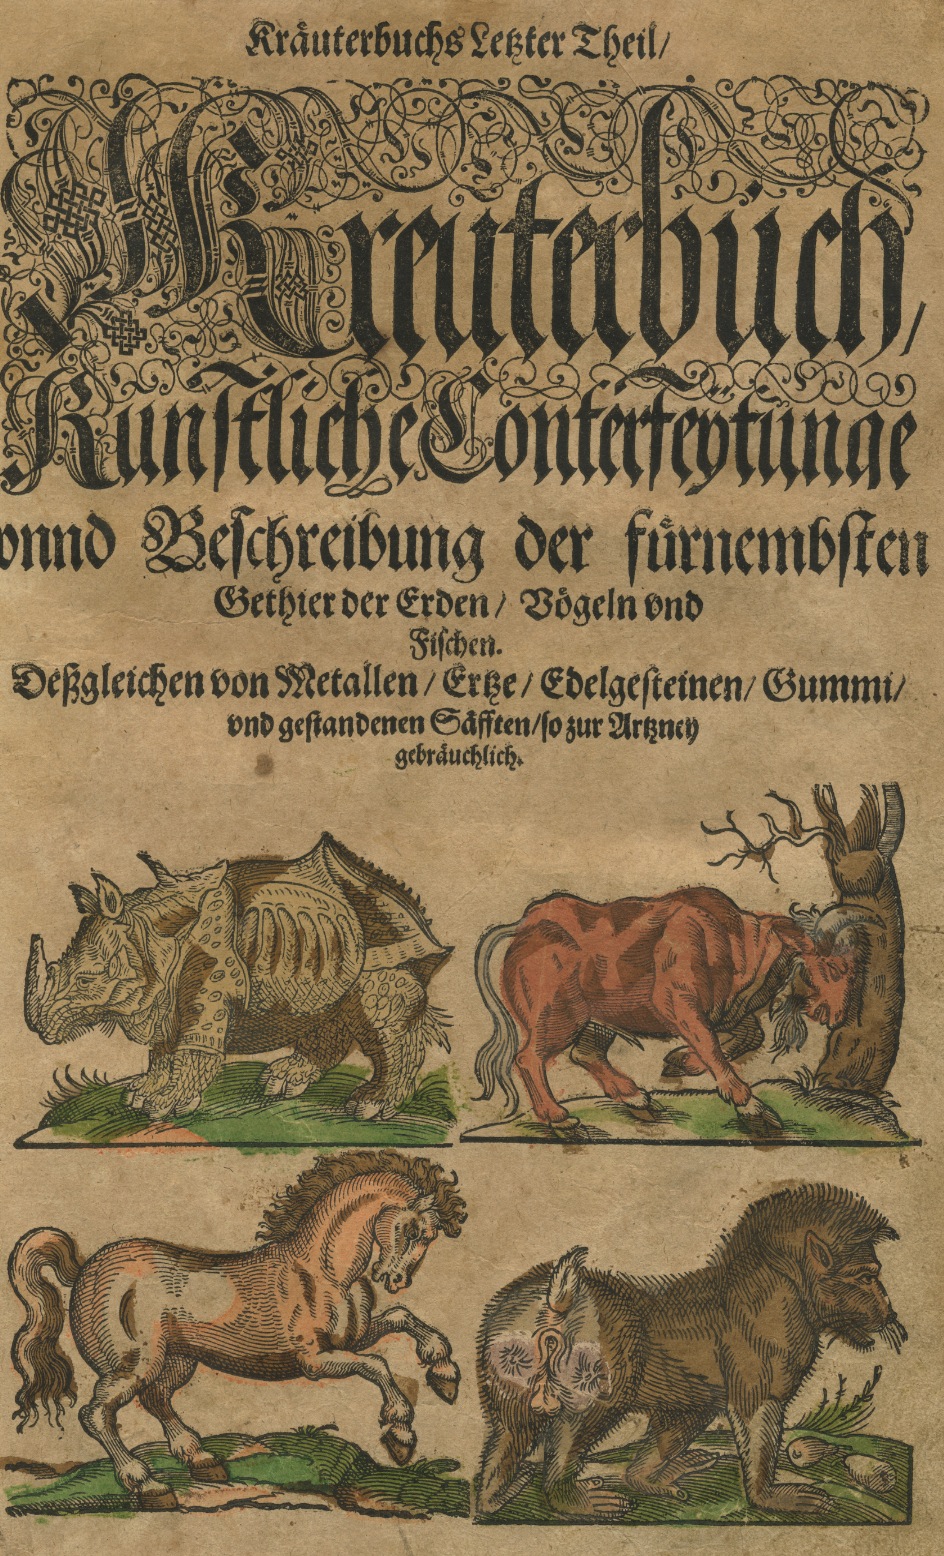 Kräuterbuchs Letzter Theil/
Kreuterbuch,
Künstliche Conterfeytunge
vnnd Beschreibung der fürnembsten
Gethier der Erden/ Vögeln vnd
Fischen.
Deßgleichen von Metallen/ Ertze/ Edelgesteinen/ Gummi/
vnd gestandenen Säfften/ so zur Artzney
gebräuchlich.